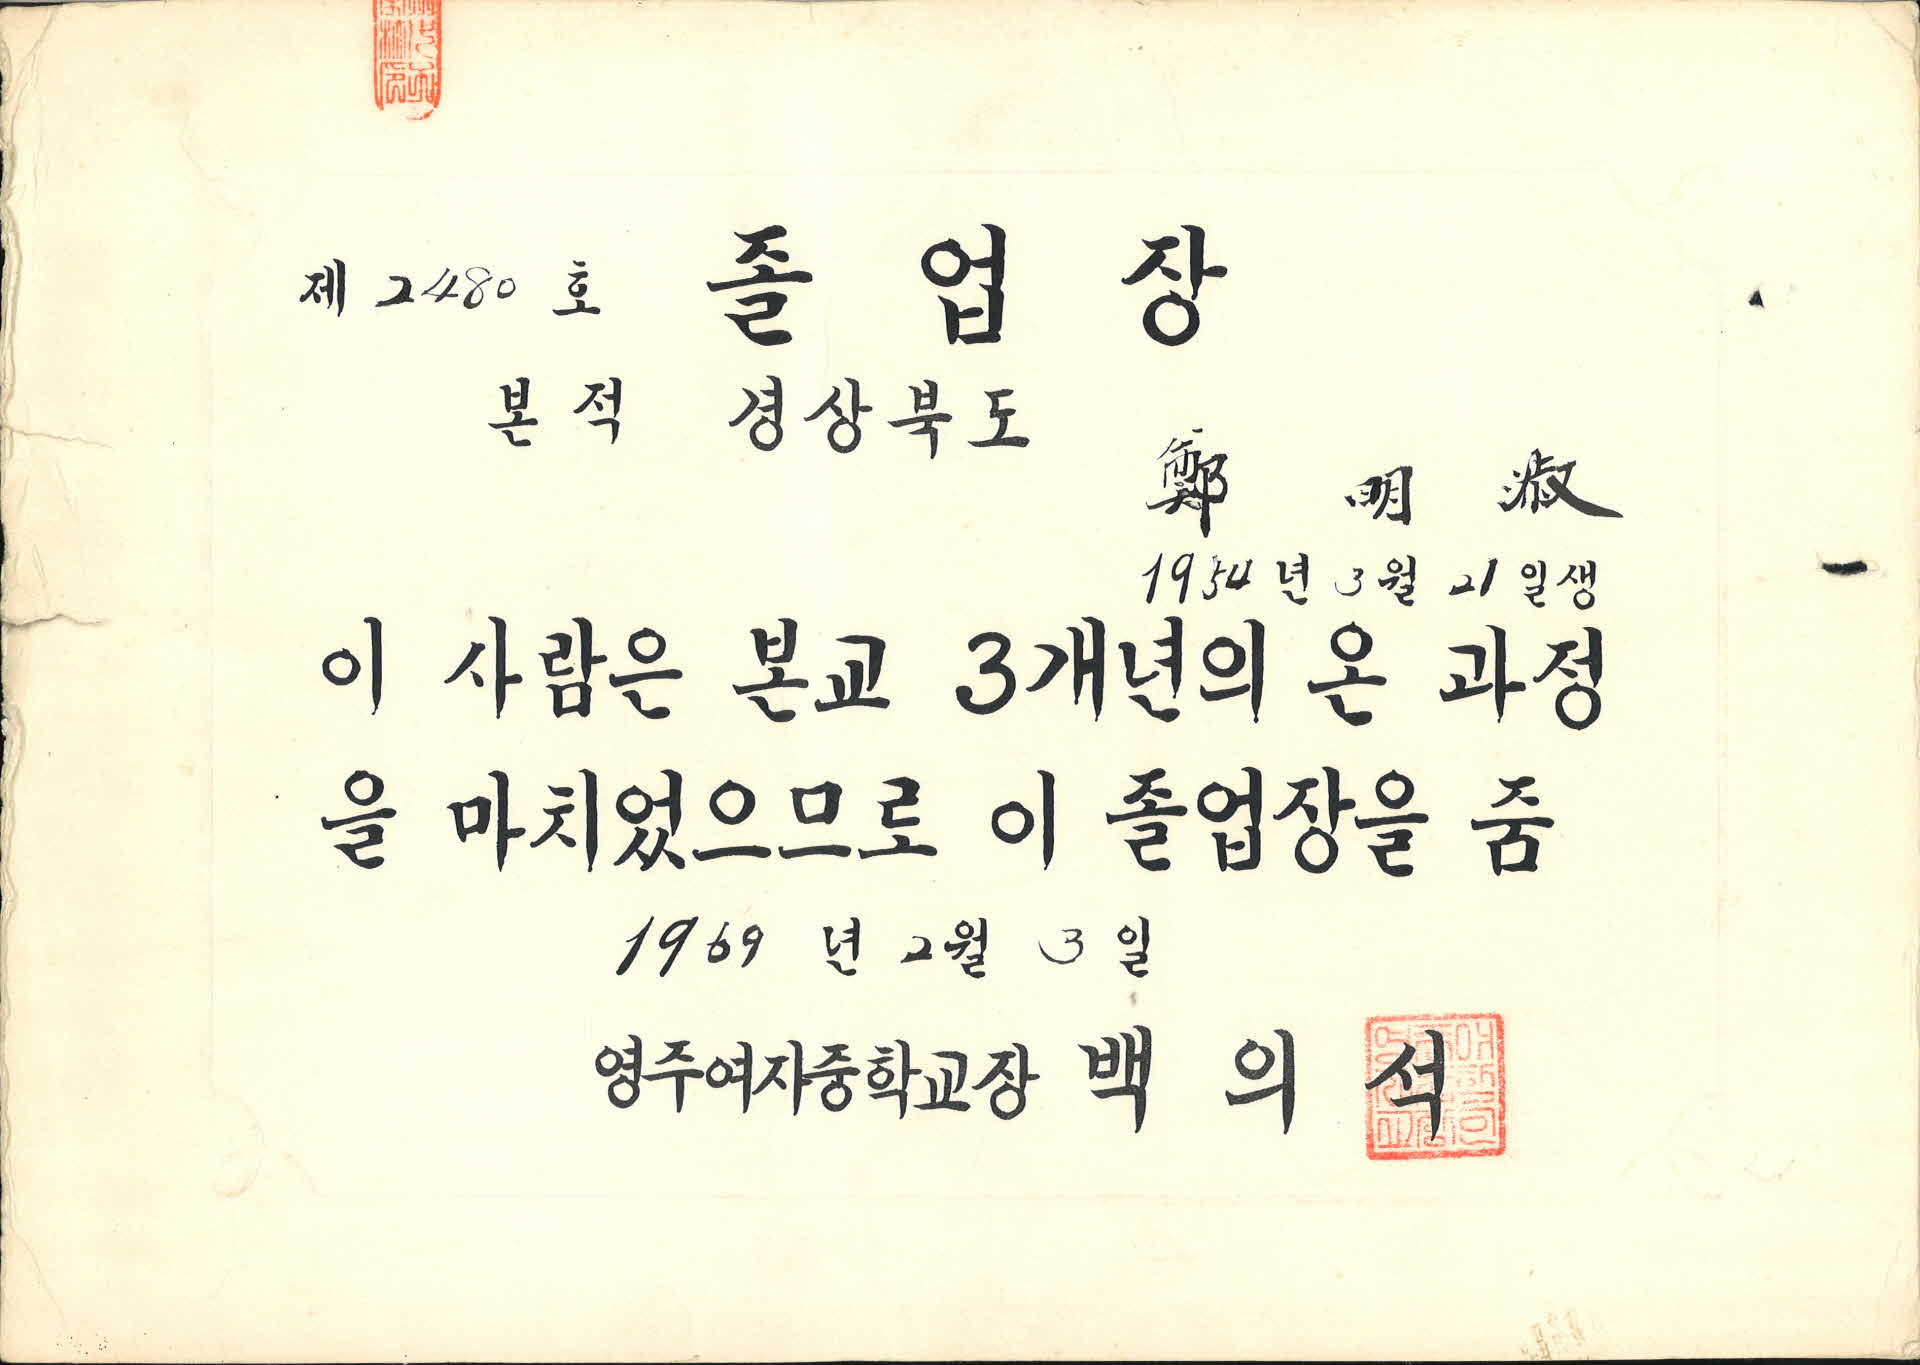 제 2480 호 졸 업 장
본 적 경상북도
鄭 明 淑
1954 년 3 월 21 일생
이 사람은 본교 3개년의 온 과정
을 마치었으므로 이 졸업장을 줌
1969 년 2월 3 일
영주여자중학교장 백 의 석